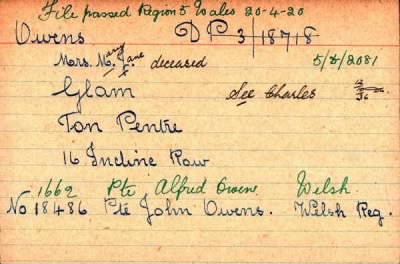 File passed Region 5 Wales 20-4-20
Owens DP 3/18718
Mrs. Mary Jane deceased 5/D/2081
Glam See Charles
Ton Pentre
16 Incline Row
1662 Pte Alfred Owens Welsh.
No 18486 Pte John Owens. Welsh Reg.